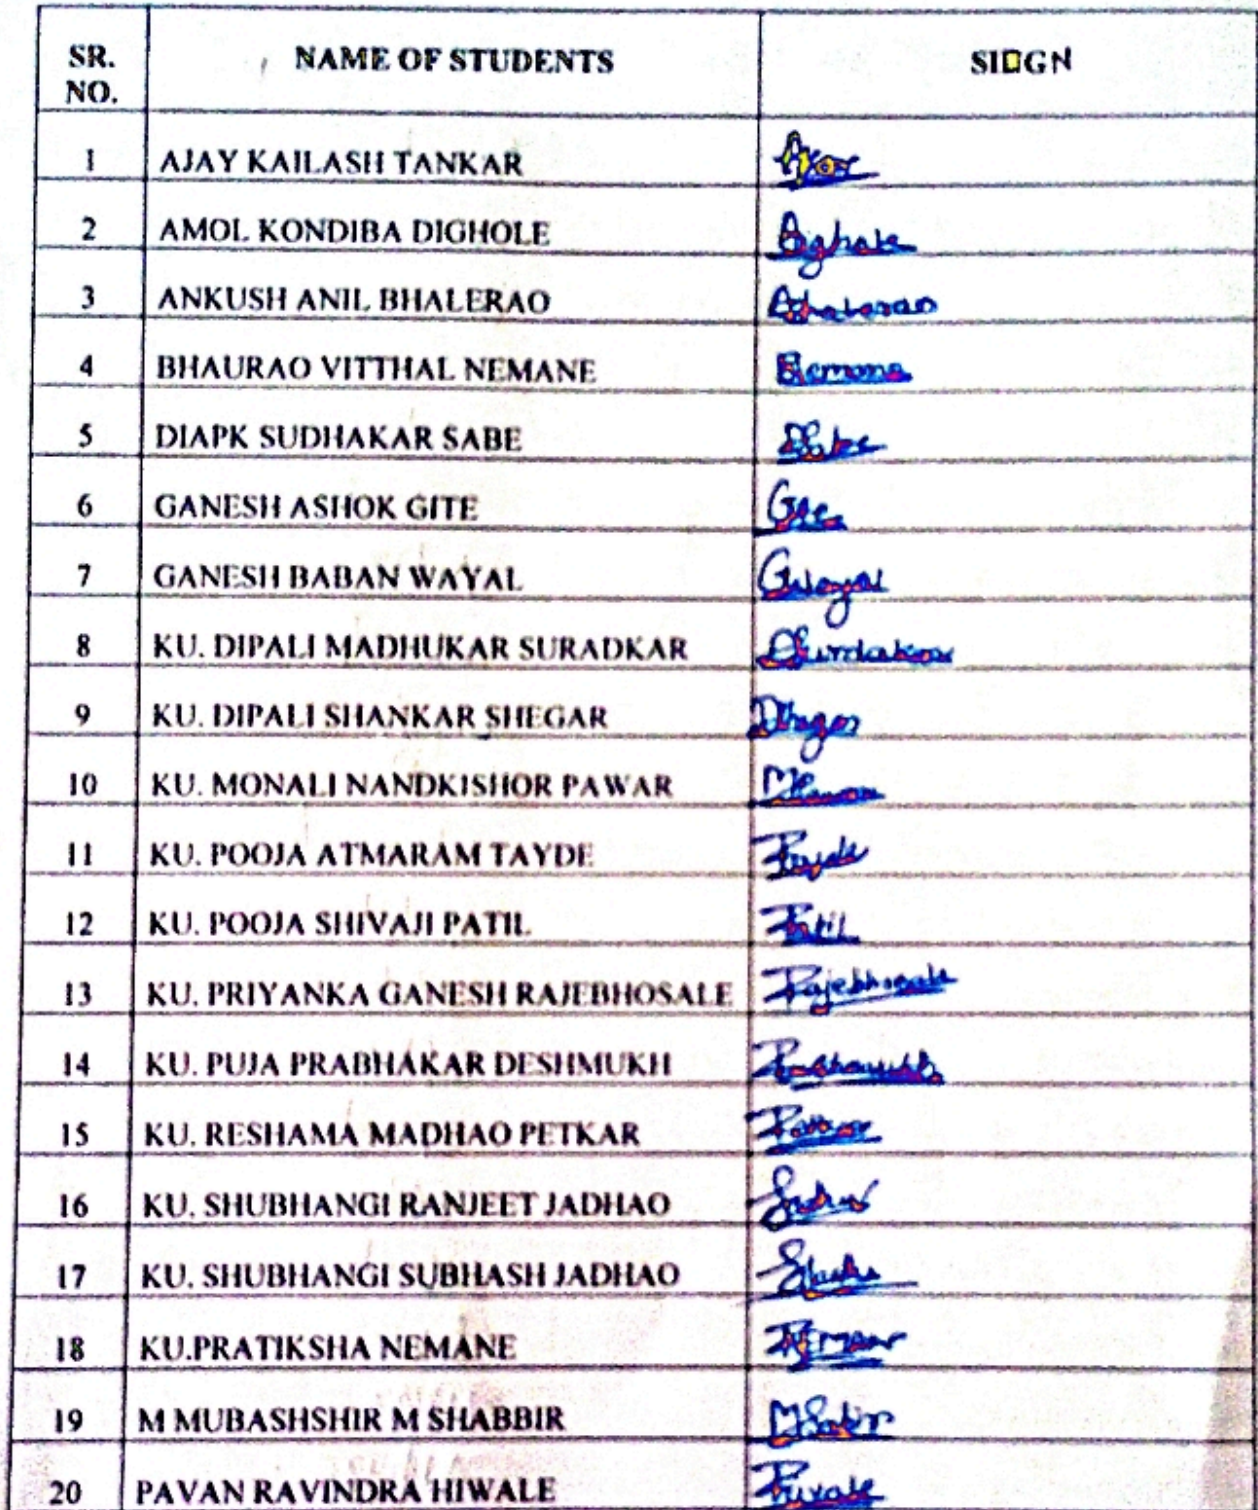 SR. NO. NAME OF STUDENTS SIGN
1 AJAY KAILASH TANKAR
2 AMOL KONDIBA DIGHOLE Dighole
3 ANKUSH ANIL BHALERAO Abhalerao
4 BHAURAO VITTHAL NEMANE
5 DIAPK SUDHAKAR SABE
6 GANESH ASHOK GITE
7 GANESH BABAN WAYAL GWayal
8 KU. DIPALI MADHUKAR SURADKAR
9 KU. DIPALI SHANKAR SHEGAR
10 KU. MONALI NANDKISHOR PAWAR
11 KU. POOJA ATMARAM TAYDE
12 KU. POOJA SHIVAJI PATIL Patil
13 KU. PRIYANKA GANESH RAJEBHOSALE Rajebhosale
14 KU. PUJA PRABHAKAR DESHMUKH
15 KU. RESHAMA MADHAO PETKAR
16 KU. SHUBHANGI RANJEET JADHAO
17 KU. SHUBHANGI SUBHASH JADHAO
18 KU.PRATIKSHA NEMANE
19 M MUBASHSHIR M SHABBIR
20 PAVAN RAVINDRA HIWALE